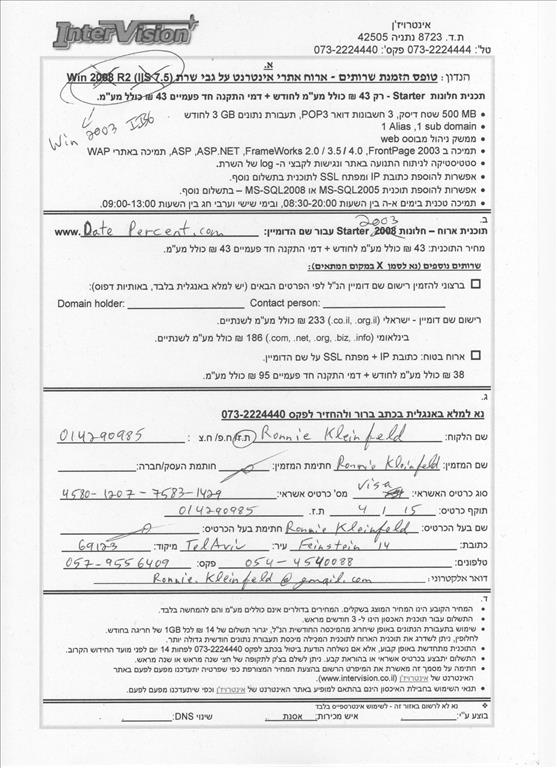 InterVision
אינטרויז'ן
ת.ד. 8723 נתניה 42505
טל': 073-2224444 פקס: 073-2224440
א.
הנדון: טופס הזמנת שרותים - ארוח אתרי אינטרנט על גבי שרת Win 2008 R2 (IIS 7.5)
תכנית חלונות Starter - רק 43 ₪ כולל מע"מ לחודש + דמי התקנה חד פעמיים 43 ₪ כולל מע"מ.
Win 2003 IIS6
500 MB שטח דיסק, 3 חשבונות דואר POP3, תעבורת נתונים 3 GB לחודש
1 Alias ,1 sub domain
ממשק ניהול מבוסס web
תמיכה ב ASP ,ASP.NET ,FrameWorks 2.0 / 3.5 / 4.0 ,FrontPage 2003, תמיכה באתרי WAP
סטטיסטיקה לניתוח התנועה באתר ונגישות לקבצי ה- log של השרת.
אפשרות להוספת כתובת IP ומפתח SSL לתוכנית בתשלום נוסף.
אפשרות להוספת תוכנית MS-SQL2005 או MS-SQL2008 – בתשלום נוסף.
תמיכה טכנית בימים א-ה בין השעות 08:30-20:00, ובימי שישי וערבי חג בין השעות 09:00-13:00.
ב.
2003
תוכנית ארוח – חלונות Starter 2008 עבור שם הדומיין: www. Date Percent.com
מחיר התוכנית: 43 ₪ כולל מע"מ לחודש + דמי התקנה חד פעמיים 43 ₪ כולל מע"מ.
שרותים נוספים (נא לסמן X במקום המתאים):
ברצוני להזמין רישום שם דומיין הנ"ל לפי הפרטים הבאים (יש למלא באנגלית בלבד, באותיות דפוס):
Domain holder: Contact person:
רישום שם דומיין - ישראלי (.co.il, .org.il) 233 ₪ כולל מע"מ לשנתיים.
בינלאומי (.com, .net, .org, .biz, .info) 186 ₪ כולל מע"מ לשנתיים.
ארוח בטוח: כתובת IP + מפתח SSL על שם הדומיין.
38 ₪ כולל מע"מ לחודש + דמי התקנה חד פעמיים 95 ₪ כולל מע"מ.
ג.
נא למלא באנגלית בכתב ברור ולהחזיר לפקס 073-2224440
שם הלקוח: Ronnie Kleinfeld ת.ז/ח.פ/ ח.צ : 014290985
שם המזמין: Ronnie Kleinfeld חתימת המזמין: חותמת העסק/חברה:
סוג כרטיס האשראי: visa מס' כרטיס אשראי: 4580-1207-7583-1429
תוקף כרטיס: 4 / 15 ת.ז. 014290985
שם בעל הכרטיס: Ronnie Kleinfeld חתימת בעל הכרטיס:
כתובת: Feinstein 14 עיר: Tel Aviv מיקוד: 69123
טלפונים: 054-4540088 פקס: 057-9556409
דואר אלקטרוני: Ronnie.Kleinfeld@gmail.com
ד.
המחיר הקובע הינו המחיר המוצג בשקלים. המחירים בדולרים אינם כוללים מע"מ והם להמחשה בלבד.
התשלום עבור תוכנית האכסון הינו ל- 3 חודשים מראש.
שימוש בתעבורת הנתונים באופן שיחרוג מהמיכסה החודשית הנ"ל, יגרור תשלום של 14 ₪ לכל 1GB של חריגה בחודש.
לחלופין, ניתן לשדרג את תוכנית הארוח לתוכנית המכילה מיכסת תעבורת נתונים חודשית גדולה יותר.
התוכנית מתחדשת באופן קבוע, אלא אם נשלחה הודעת ביטול בכתב לפקס 073-2224440 לפחות 14 יום לפני מועד החידוש הקרוב.
התשלום יתבצע בכרטיס אשראי או בהוראת קבע. ניתן לשלם בצ'ק לתקופה של חצי שנה מראש או שנה מראש.
חתימה על מסמך זה מאשרת את המפרט הרשום בהצעת המחיר המצורפת כפי שפרטיה יתעדכנו מפעם לפעם באתר
האינטרנט של אינטרויז'ן (www.intervision.co.il).
תנאי השימוש בחבילת האיכסון הינם בהתאם למופיע באתר האינטרנט של אינטרויז'ן וכפי שיתעדכנו מפעם לפעם.
נא לא לרשום באזור זה - לשימוש אינטרספייס בלבד
בוצע ע"י: איש מכירות: אסנת שינוי DNS: